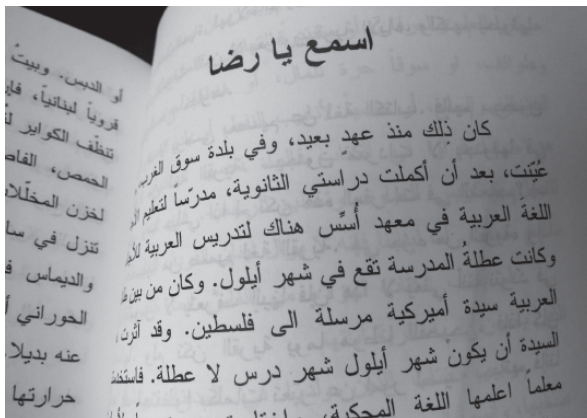 اسمع يا رضا
كان ذلك منذ عهدٍ بعيد، وفي بلدة سوق الغرب،
عُيّنت، بعد أن أكملت دراستي الثانوية، مدرّساً لتعليم
اللغةَ العربية في معهد أُسِّس هناك لتدريس العربية
وكانت عطلةُ المدرسة تقع في شهر أيلول. وكان من بين
العربية سيدة أميركية مرسلة الى فلسطين. وقد آثرت
السيدة أن يكون شهر أيلول شهر درس لا عطلة.
معلماً اعلمها اللغة المحكية،
أو الدبس. وبيتُ
قروياً لبنانياً،
تنظّف الكواير
الحمص،
لخزن المخلّلات
تنزل في
والديماس
الحوراني
عنه بديلا
حرارتها